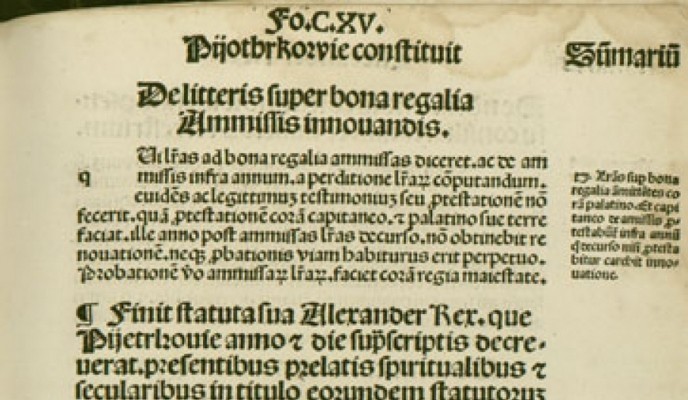 Fo.C.XV.
Pijothrkorvie constituit
Sūmariū
De litteris super bona regalia
Ammissis innouandis.
Ui lr̄as ad bona regalia ammissas diceret. ac de am
q missis infra annum. a perditione lr̄aꝝ cōputandum.
euidēs ac legittimuʒ testimoniuʒ seu ꝓtestationē nō
fecerit. quā ꝓtestationē corā capitaneo. ⁊ palatino sue terre
faciat. ille anno post ammissas lr̄as decurso. nō obtinebit re
nouationē. neqʒ ꝓbationis viam habiturus erit perpetuo.
Probationē ꝟo ammissaꝝ lr̄aꝝ. faciet corā regia maiestate.
Lr̄as sup bona
regalia āmittētes co
rā palatino. et capi
taneo de amissis ꝓ
testabūt̄ infra annū
q̄ decurso nisi ꝓtesta
bitur carebit inno⸗
uatione.
¶ Finit statuta sua Alexander Rex. que
Pijetrkouie anno ⁊ die sup̄scriptis decre⸗
uerat. presentibus prelatis spiritualibus ⁊
secularibus in titulo eorundem statutoruʒ